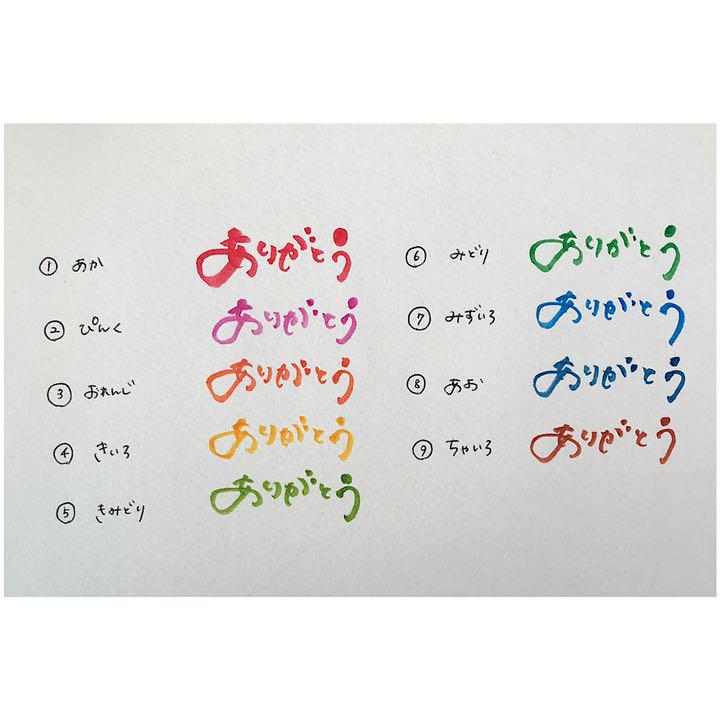 ① あか ありがとう
② ぴんく ありがとう
③ おれんじ ありがとう
④ きいろ ありがとう
⑤ きみどり ありがとう
⑥ みどり ありがとう
⑦ みずいろ ありがとう
⑧ あお ありがとう
⑨ ちゃいろ ありがとう